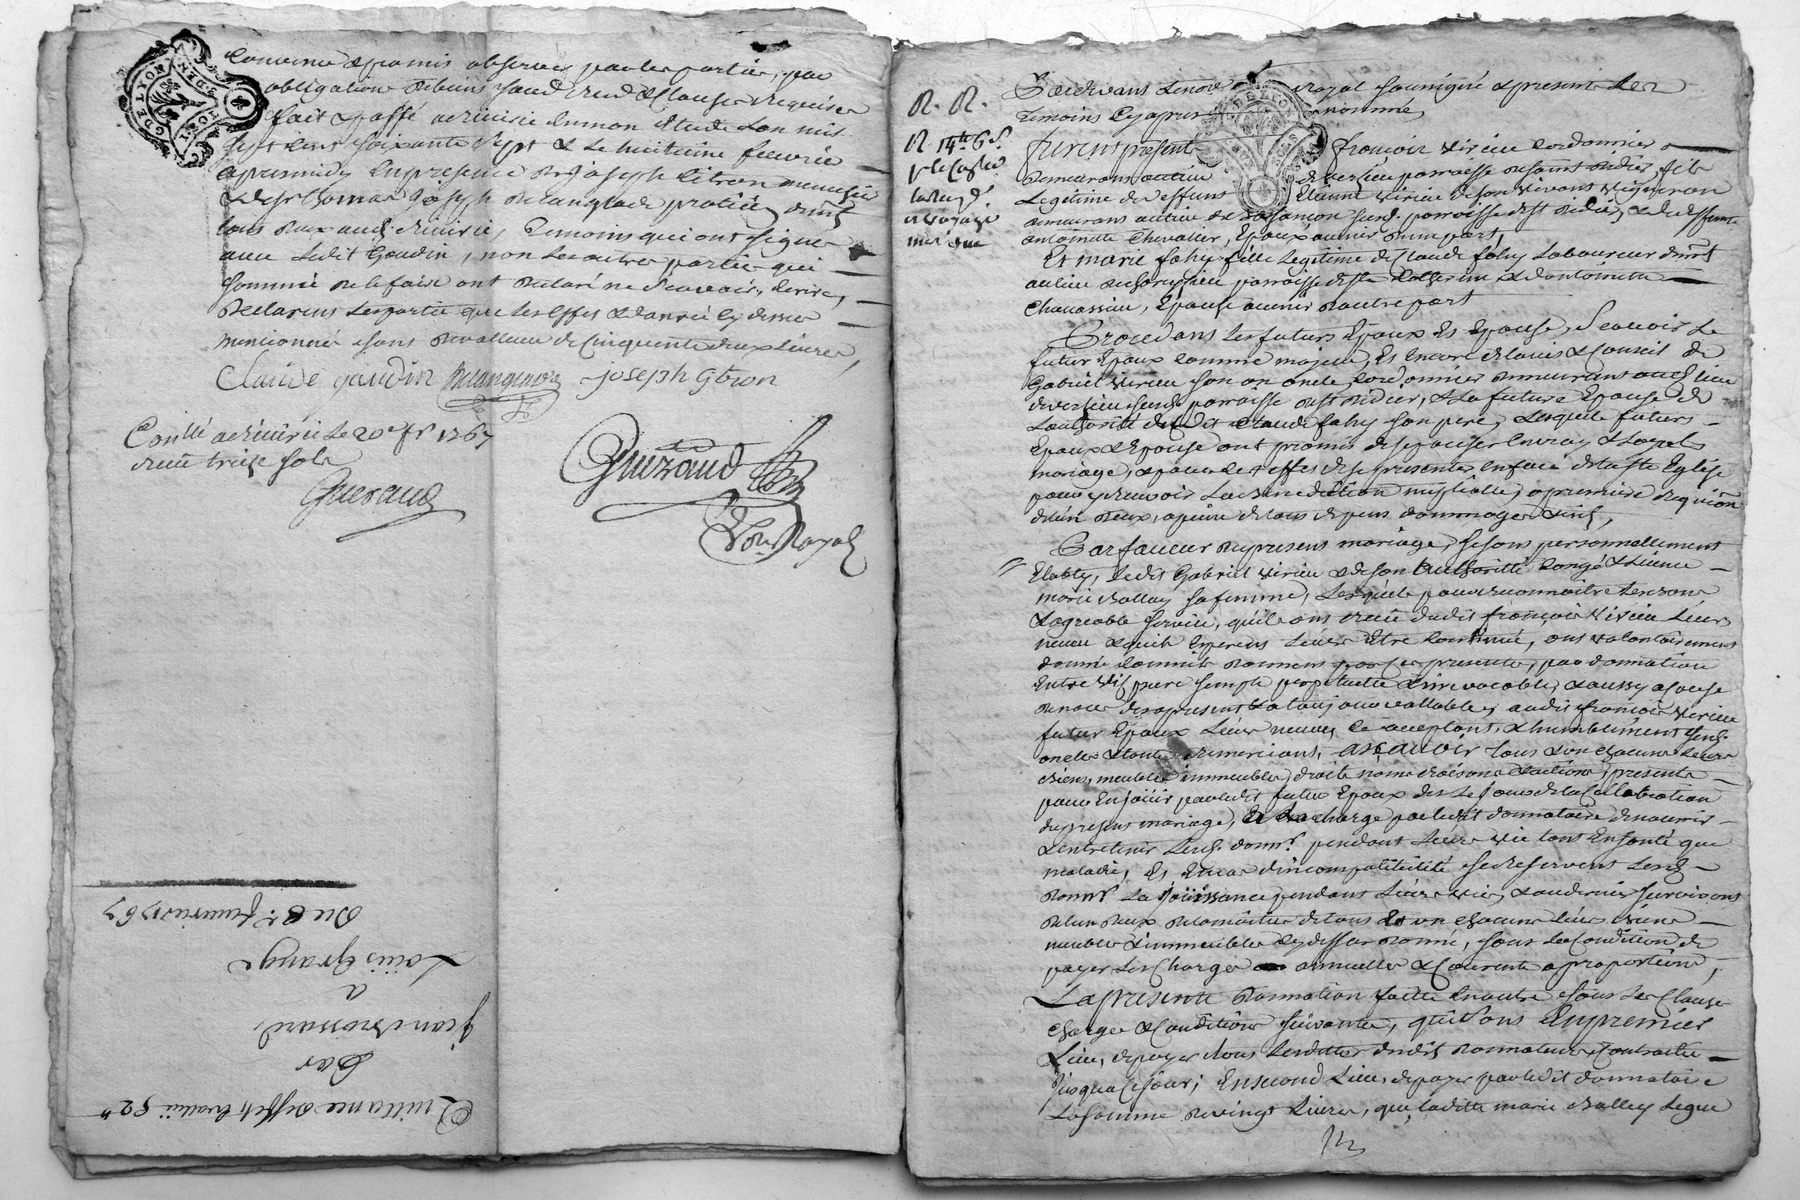 G DE LYON
convenu & promis observer par les parties, par
obligation de biens soumis & clauses requises
fait & passé a en mon Etude L'an mil
sept cent soixante sept & le huitieme fevrier
apresmidy En presence de Joseph Citron menuisier
& de sr Thomas Joseph Delanglade praticien demt
tous deux aud. Temoins qui ont signé
avec Ledit Gaudin, non Les autres parties qui
sommé de le faire ont declaré ne scavoir, de ce
Declarent Les parties que Les effets & danrée Cy dessus
mentionné sont de valleur de Cinquante deux Livres,
Claude gaudin Delanglade joseph Citron
Conllé a le 20e fr 1767
receu treize sols
Gueraud
Gueraud
Nore Royal
Du 8e fevrier 1767
Loüis Grange
a
Jean Brossard
Par
Quittance d'effets 52
R. R.
Pardevant Le nore royal soussigné & presents Les
Temoins Cy apres nommé,
R. 14
furent present françois Virieu Cordonnier
Demeurant au lieu de Versieu parroisse de saint Didier, fils
Legitime de deffunt Etienne Virieu de son Vivant Vigneron
demeurant au lieu de parroisse de st Didier, & de deffunte
antoinette Chevalier, Epoux avenir d'une part,
Et marie fahy fille Legitime de Claude fahy Laboureur demt
au lieu de parroisse de ste Catherine & d'antoinette
Chavassieu, Epouse avenir d'autre part
Procedans Les futurs Epoux Et Epouse, Scavoir Le
futur Epoux comme majeur, Et Encore de l'avis & Conseil de
Gabriel Virieu son oncle, Cordonnier demeurant aud. lieu
de Versieu susd. parroisse de st Didier, & La future Epouse de
L'authorité dudit Claude fahy son pere, Lesquels futurs
Epoux & Epouse ont promis de s'epouser en vray & Loyal
mariage, & pour Les effets de se presenter en face de la ste Eglise
pour y recevoir La Benediction nuptialle, a premiere requion
de l'un d'eux, a peine de tous depens dommages & ints,
En faveur du present mariage, se sont personnellement
Etably, Ledit Gabriel Virieu & de son authorité Congé & Licence
marie Balley sa femme, Lesquels pour reconnoitre Les bons
& agreable service, qu'ils ont receu dudit françois Virieu Leur
neveu & qu'ils Esperent Leur Etre Continué, ont volontairement
donné comme ils donnent par Ces presentes, par donnation
Entre Vif pure simple perpetuelle & irrevocable, & aussy a cause
de noce des apresent & a toujours vallable, audit françois Virieu
futur Epoux Leur neveu, Ce acceptant, & humblement sesd.
oncle & tante remerciant, ascavoir tous & un chacuns Leurs
Biens, meubles immeubles, droits noms raisons & actions, presents
pour En joüir par ledit futur Epoux des Le jour de la Cellebration
du present mariage, Et a la charge par ledit donnataire de nourrir
& entretenir Lesd. donnrs. pendant Leur vie tant En santé que
maladie, Et En cas d'incompatibilité se reservent Lesd.
donnrs. La joüissance pendant Leur vie, & au dernier survivant
de l'un d'eux de la moitié de tous Et un chacuns Leurs biens
meubles & immeubles Cy dessus donné, sous La Condition de
payer Les Charges annuelles & Courante a proportions,
La presente donnation faitte En outre sous Les Clauses
charges & Conditions suivantes, qui sont En premier
Lieu, de payer tous Les dettes dudit donnateur Contractée
jusqu'a Ce jour; En second Lieu, de payer par ledit donnataire
La somme de vingt Livres, que Laditte marie Balley Legue